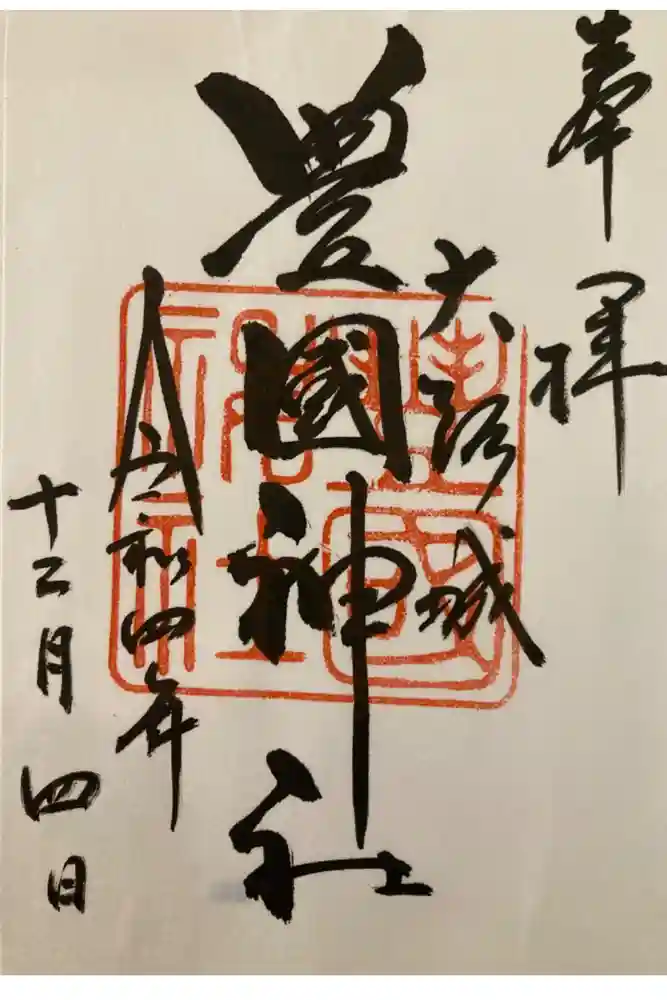 奉拝
大阪城
豊國神社
令和四年
十二月四日
豊國神社